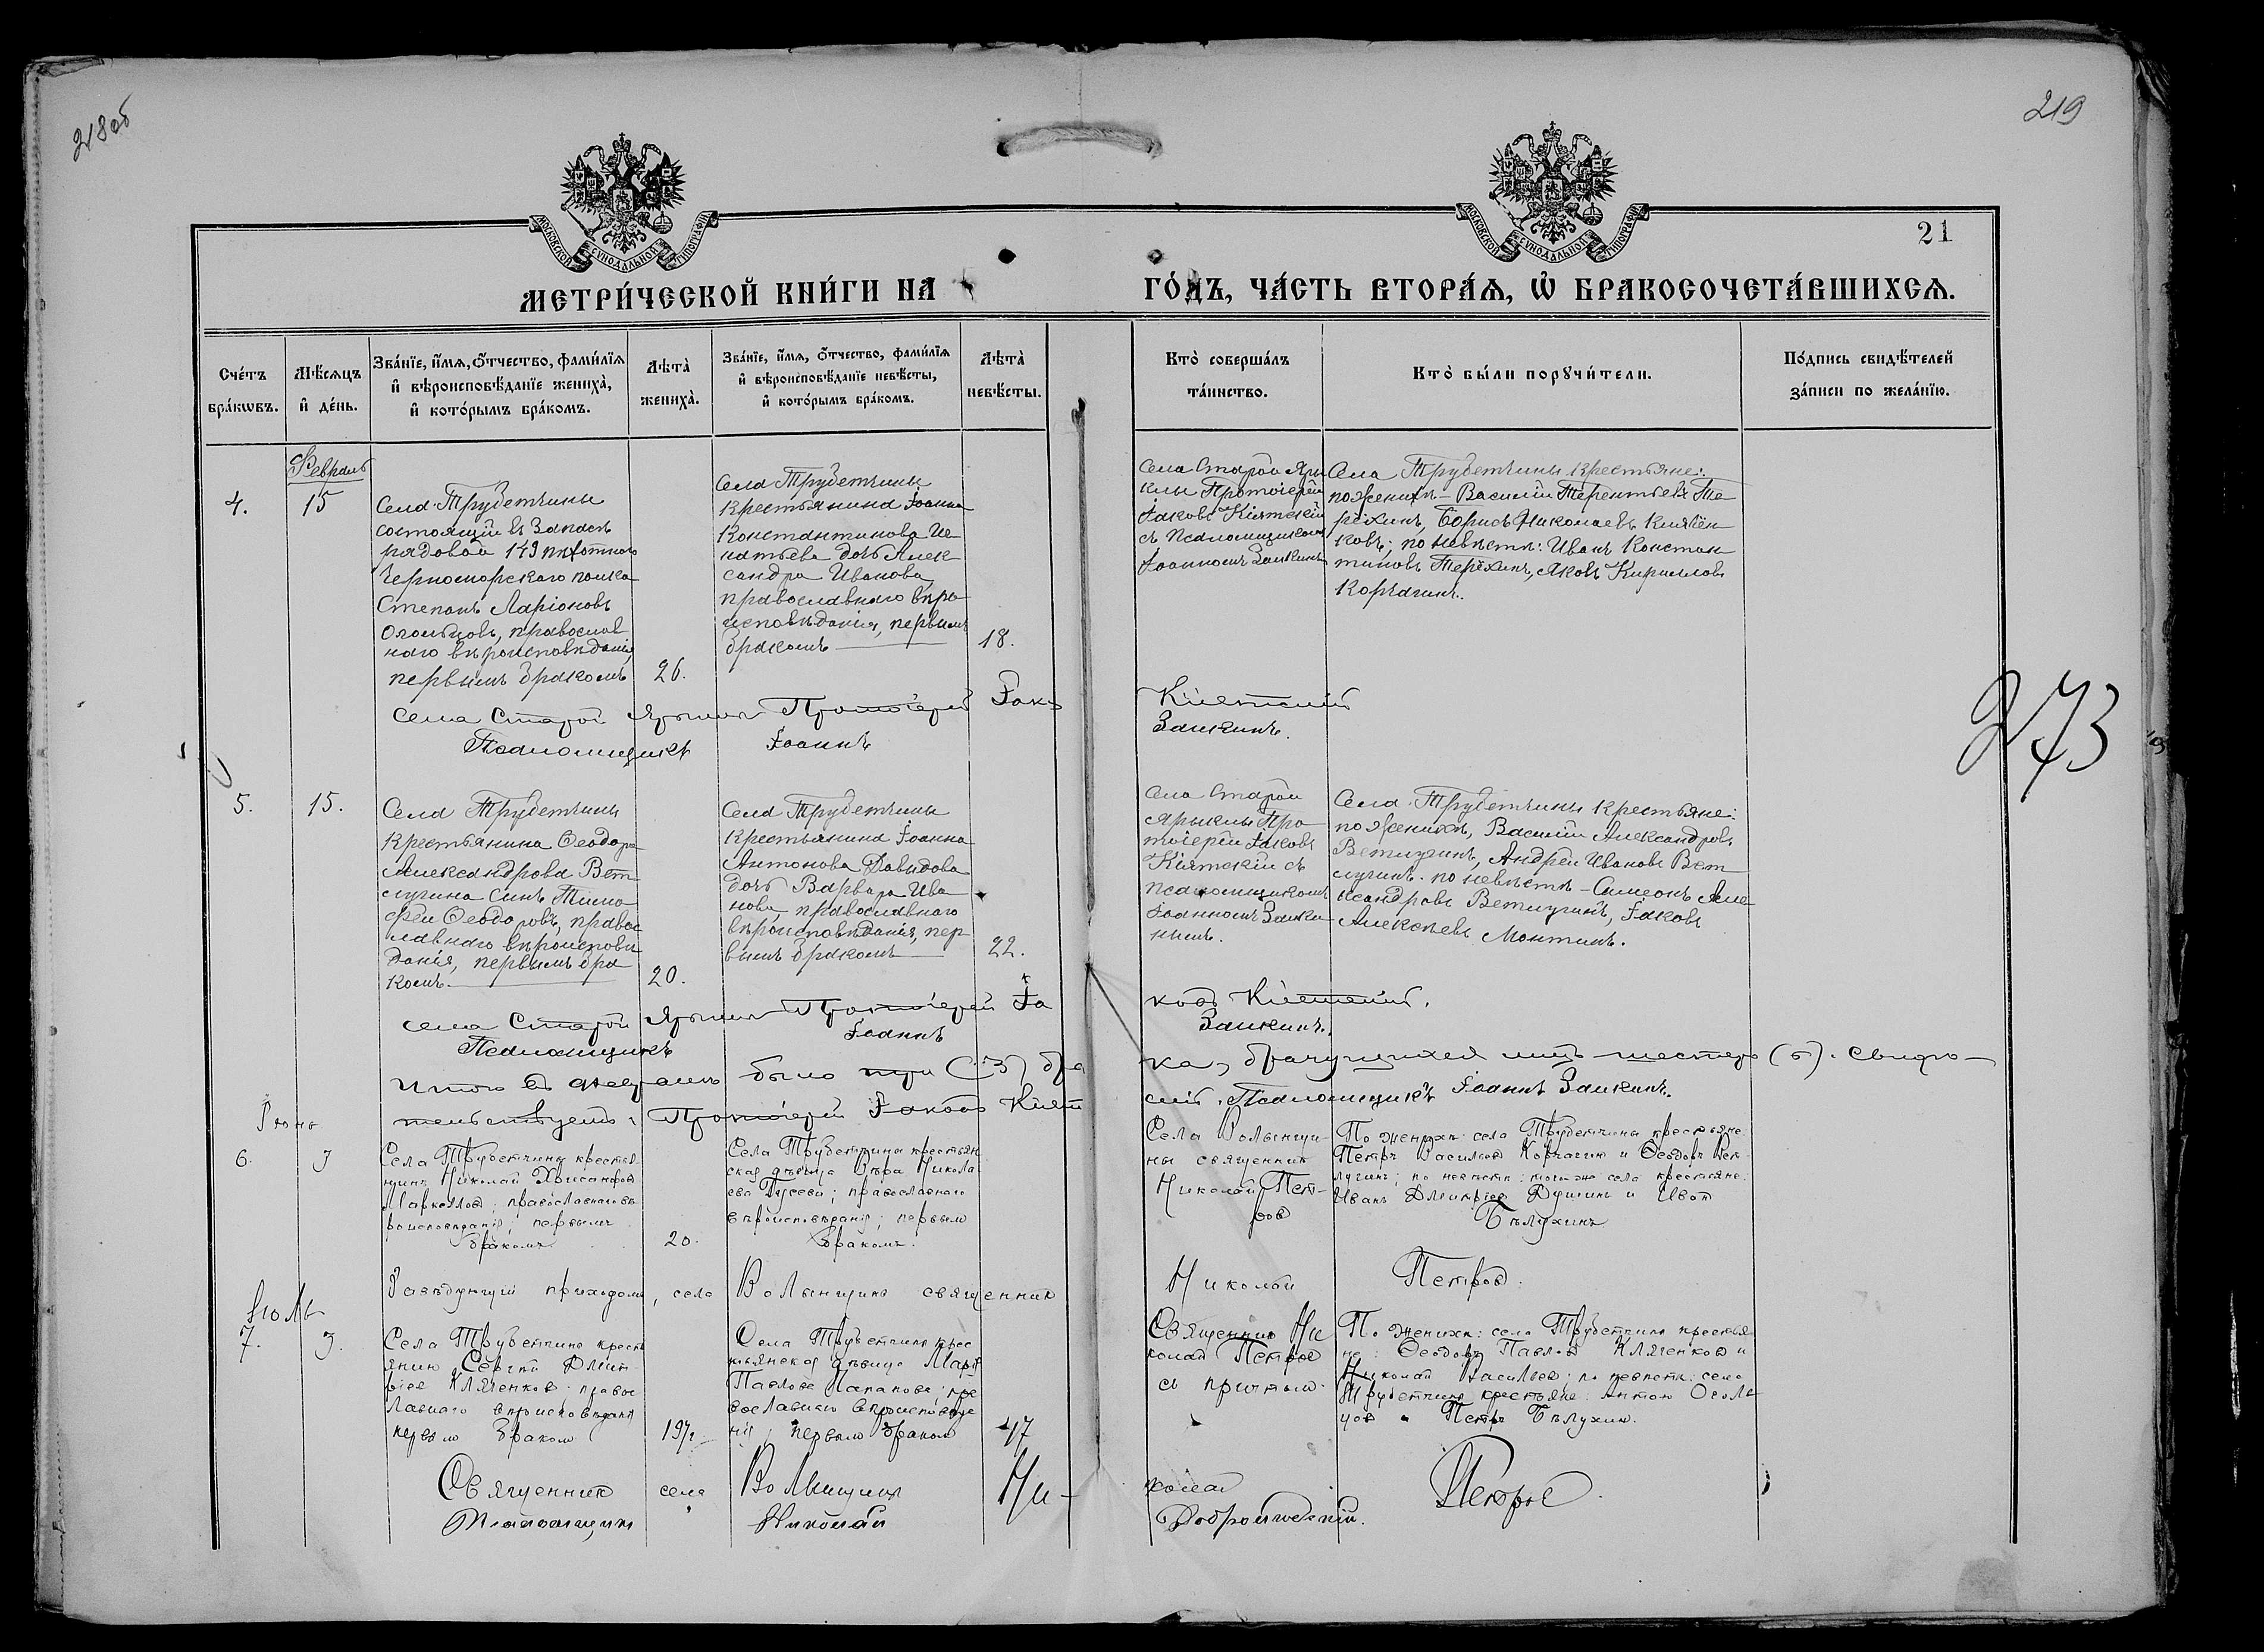 218 об
219
МОСКОВСКОЙ СѴНОДАЛЬНОЙ ТИПОГРАФІИ
МОСКОВСКОЙ СѴНОДАЛЬНОЙ ТИПОГРАФІИ
21
МЕТРИ́ЧЕСКОЙ КНИ́ГИ НА
ГО́ДЪ, ЧА́СТЬ ВТОРА́Ѧ, Ѡ҆ БРАКОСОЧЕТА́ВШИХСѦ.
Сче́тъ
бра́кѡвъ.
Мѣ́сѧцъ
и҆ де́нь.
Зва́нїе, и҆́мѧ, ѻ҆́тчество, фами́лїѧ
и҆ вѣроисповѣ́данїе жениха̀,
и҆ кото́рымъ бра́комъ.
Лѣ́та̀
жениха̀.
Зва́нїе, и҆́мѧ, ѻ҆́тчество, фами́лїѧ
и҆ вѣроисповѣ́данїе невѣ́сты,
и҆ кото́рымъ бра́комъ.
Лѣ́та̀
невѣ́сты.
Кто̀ соверша́лъ
та́инство.
Кто̀ бы́ли порꙋчи́тели.
По́дпись свидѣ́телей
за́писи по жела́нїю.
Февраль
4.
15
Села Трубетчины
состоящій въ запасѣ
рядовой 149 пѣхотнаго
Черноморскаго полка
Степанъ Ларіоновъ
Осольцовъ, православ
наго вѣроисповѣданія
первымъ бракомъ
26.
Села Трубетчины
крестьянина Іоанна
Константинова Иг
натьева дочь Алек
сандра Иванова,
православнаго вѣро
исповѣданія, первымъ
бракомъ
18.
Села Старой Яры
клы Протоіерей
Іаковъ Кіятскій
съ псаломщикомъ
Іоанномъ Заикинымъ
Села Трубетчины крестьяне:
по женихѣ – Василій Терентьевъ Те
рёхинъ, Борисъ Николаевъ Клячен
ковъ; по невѣстѣ: Иванъ Констан
тиновъ Терёхинъ, Яковъ Кирилловъ
Корчагинъ.
села Старой Ярыклы Протоіерей Іаковъ
Кіятскій
Псаломщикъ Іоаннъ
Заикинъ.
273
5.
15.
Села Трубетчины
крестьянина Ѳеодора
Александрова Вет
лугина сынъ Тимо
фей Ѳеодоровъ, правос
лавнаго вѣроисповѣ
данія, первымъ бра
комъ.
20.
Села Трубетчины
крестьянина Іоанна
Антонова Давыдова
дочь Варвара Ива
нова, православнаго
вѣроисповѣданія, пер
вымъ бракомъ
22.
Села Старой
Ярыклы Про
тоіерей Іаковъ
Кіятскій съ
псаломщикомъ
Іоанномъ Заики
нымъ.
Села Трубетчины крестьяне:
по женихѣ, Василій Александровъ
Ветлугинъ, Андрей Ивановъ Вет
лугинъ. по невѣстѣ – Симеонъ Але
ксандровъ Ветлугинъ, Іаковъ
Алексѣевъ Монтинъ.
села Старой Ярыклы Протоіерей Іа
ковъ Кіятскій.
Псаломщикъ Іоаннъ
Заикинъ.
Итого въ Февралѣ было три (3) бра
ка, брачущихся лицъ шестеро (6). Свидѣ–
тельствуетъ: Протоіерей Іаковъ Кіят
скій. Псаломщикъ Іоаннъ Заикинъ.
Іюнь
6.
3
Села Трубетчины крестья
нинъ Николай Хрисанфовъ
Маркеловъ; православнаго вѣ
роисповѣданія; первымъ
бракомъ
20.
Села Трубетчины крестьян
ская дѣвица Вѣра Никола
ева Гусева; православнаго
вѣроисповѣданія; первымъ
бракомъ.
Села Волынщи-
ны священникъ
Николай Пет-
ровъ
По женихѣ: села Трубетчины крестьяне
Петръ Васильевъ Корчагинъ и Ѳеодоръ Вет
лугинъ; по невѣстѣ: того же села крестьяне
Иванъ Дмитріевъ Душинъ и Иванъ
Бѣлухинъ
Завѣдующій приходомъ, села Волынщины священникъ
Николай Петровъ.
Іюль
7.
3.
Села Трубетчины кресть
янинъ Сергѣй Дмит-
ріевъ Кляченковъ: правос
лавнаго вѣроисповѣданія
первымъ бракомъ
19½
Села Трубетчины крес
тьянская дѣвица Марія
Павлова Лапанова: пра
вославнаго вѣроисповѣда
нія; первымъ бракомъ
17
Священникъ Ни
колай Петровъ
съ причтомъ.
По женихѣ: села Трубетчины крестья
не: Ѳеодоръ Павловъ Кляченковъ и
Николай Васильевъ; по невѣстѣ: села
Трубетчины крестьяне: Антонъ Осоль
цовъ и Петръ Бѣлухинъ.
Священникъ села Волынщины Ни-
колай Петровъ.
Псаломщикъ Николай